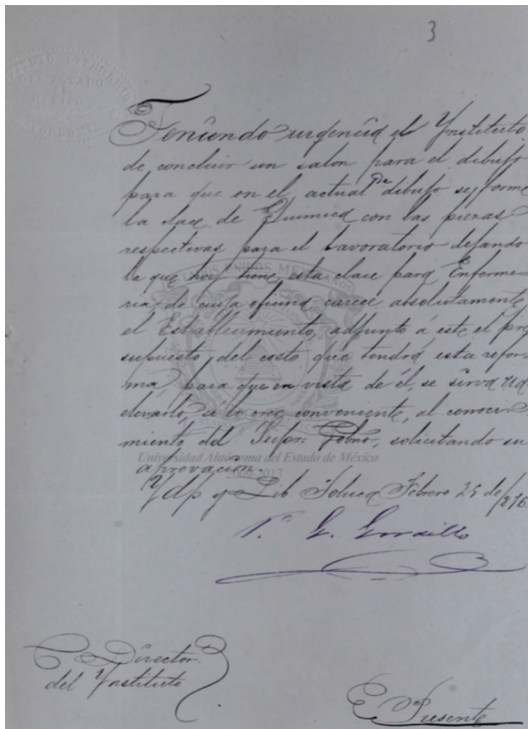 3
Teniendo urgencia el Ynstituto
de concluir un salon para el dibujo
para que en el actual de dibujo se forme
la clace de Quimica con las piezas
respectivas para el Lavoratorio dejando
la que hoy tiene esta clace para Enferme-
ria, de cuya oficina carece absolutamente
el Establecimiento, adjunto á este el pre
supuesto del costo que tendrá esta refor-
ma, para que en vista de él, se sirva Ud
elevarlo, si lo cree conveniente, al conoci-
miento del Supor. Gobno, solicitando su
aprovacion.
Universidad Autónoma del Estado de México
2013
Ydp y Lib Toluca Febrero 25 de
Director
del Ynstituto
Presente